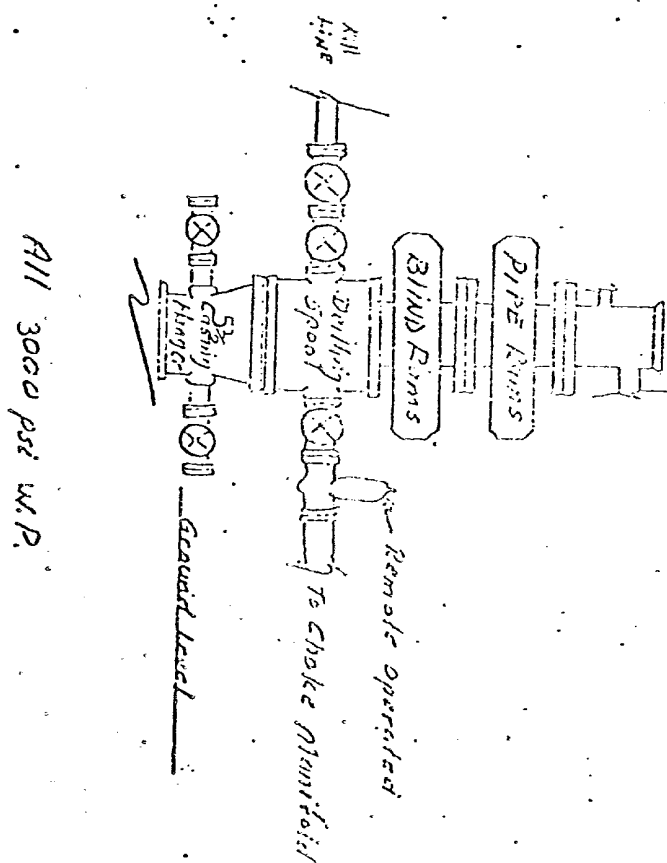 PIPE Rams
BLIND Rams
Kill
LINE
Drilling
Spool
Remote Operated
To Choke Manifold
5½
Casing
Hanger
Ground Level
All 3000 psi W.P.